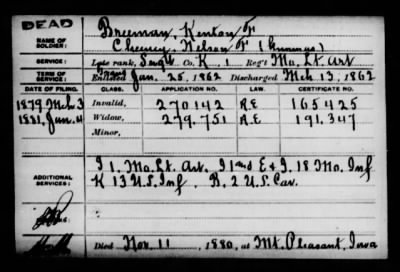 DEAD
NAME OF SOLDIER: Breeman, Kenton F
Cheney, Nelson F
SERVICE: Late rank, Sergt Co. K 1 Reg't Mo. Lt. Art
TERM OF SERVICE: Enlisted Jan. 25, 1862 Discharged Mch 13, 1862
DATE OF FILING. CLASS. APPLICATION NO. LAW. CERTIFICATE NO.
1879 Mch. 3 Invalid, 270142 R.E 165425
1881, Jan. 4 Widow, 279.751 R.E 191,347
Minor,
ADDITIONAL SERVICES: I 1. Mo. Lt. Art. I & I. 18 Mo. Inf
K 13 U.S. Inf. B. 2 U.S. Cav.
Died Nov. 11, 1880, at Mt. Pleasant, Iowa